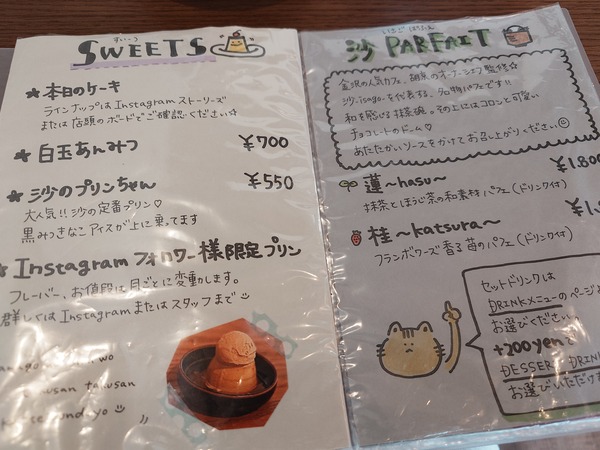 すいーつ
SWEETS
★ 本日のケーキ
ラインナップは Instagram ストーリーズ
または店頭のボードでご確認ください☆
★ 白玉あんみつ ¥700
★ 沙のプリンちゃん ¥550
大人気!! 沙の定番プリン♡
黒みつきなこアイスが上に乗ってます
★ Instagram フォロワー様限定プリン
フレーバー、お値段は月ごとに変動します。
詳しくは Instagram またはスタッフまで
wo
takusan
沙 PARFAIT
金沢の人気カフェ、
オーナーシェフ監修☆
沙.isago.を代表する、名物パフェです!!
和を感じる抹茶碗。その上にはコロンと可愛い
チョコレートのドーム♡
あたたかいソースをかけてお召し上がりください
蓮〜hasu〜 ¥1.800
抹茶とほうじ茶の和素材パフェ(ドリンク付)
桂〜katsura〜
フランボワーズ香る苺のパフェ(ドリンク付)
セットドリンクは
DRINKメニューのページよ
お選びください
+200yenで
DESSERT DRIN
お選びいただけ